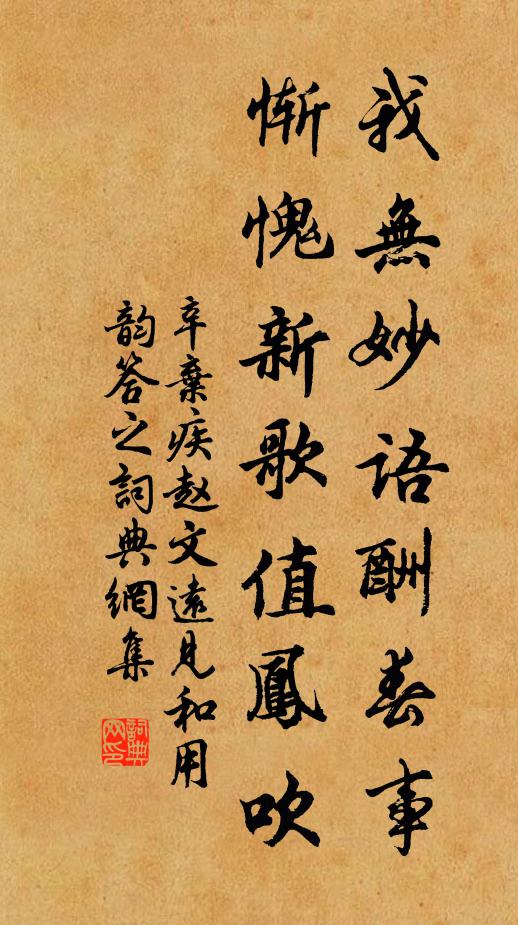 我無妙語酬春事
慚愧新歌值鳳吹
辛棄疾赵文遠見和用
韵答之詞典網集
詞典
网印